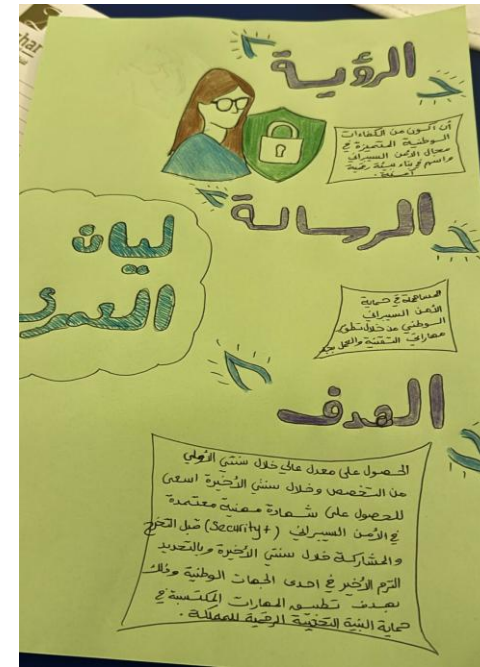 shar
الرؤية
أن أكون من الكفاءات
الوطنية المتميزة في
مجال الأمن السيبراني
واسهم في بناء بيئة رقمية
آمنة.
الرسالة
ليان
العمري
المساهمة في حماية
الأمن السيبراني
الوطني من خلال تطوير
مهاراتي التقنية والعمل بجد
الهدف
الحصول على معدل عالي خلال سنتي الأولى
من التخصص وخلال سنتي الأخيرة اسعى
للحصول على شهادة مهنية معتمدة
في الأمن السيبراني (Security+) قبل التخرج
والمشاركة خلال سنتي الأخيرة وبالتحديد
الترم الأخير في احدى الجهات الوطنية وذلك
بهدف تطبيق المهارات المكتسبة في
حماية البنية التحتية الرقمية للمملكة.